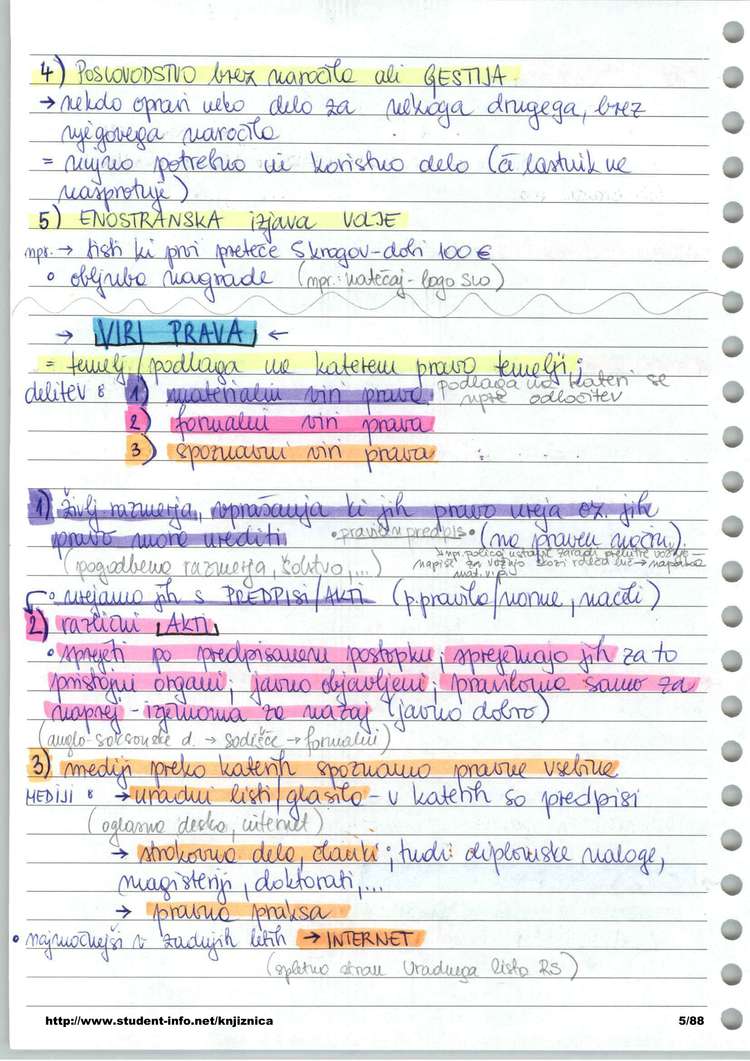 4) POSLOVODSTVO brez naročila ali GESTIJA
→ nekdo opravi neko delo za nekoga drugega, brez
njegovega naročila
= nujno potrebno in koristno delo (če lastnik ne
nasprotuje)
5) ENOSTRANSKA izjava VOLJE
npr. → tisti ki prvi preteče 5 krogov - dobi 100 €
∘ obljuba nagrade (npr.: natečaj - logo SLO)
→ VIRI PRAVA ←
= temelj / podlaga na katerem pravo temelji;
podlaga na kateri se
delitev: 1) materialni viri prava
upre odločitev
2) formalni viri prava
3) spoznavni viri prava
1) življ. razmerja, vprašanja ki jih pravo ureja oz. jih
pravo mora urediti • pravila v predpis • (na praven način).
↳ npr. policaj ustavi zaradi prehitre vožnje
(pogodbena razmerja, šolstvo, ...) napiše za vožnjo skozi rdečo luč → napaka
mat. v. p.
∘ urejamo jih s PREDPISI / AKTI (p. pravila / norme, načeli)
2) različni AKTI
• sprejeti po predpisanem postopku; sprejemajo jih za to
pristojni organi; javno objavljeni; praviloma samo za
naprej - izjemoma za nazaj (javno dobro)
(anglo-saksonske d. → sodišče → formalni)
3) mediji preko katerih spoznamo pravne vsebine
MEDIJI: → uradni listi / glasila - v katerih so predpisi
(oglasna deska, internet)
→ strokovna dela, članki; tudi: diplomske naloge,
magisteriji, doktorati, ...
→ pravna praksa
• najmočnejši v zadnjih letih → INTERNET
(spletna stran Uradnega lista RS)
http://www.student-info.net/knjiznica 5/88